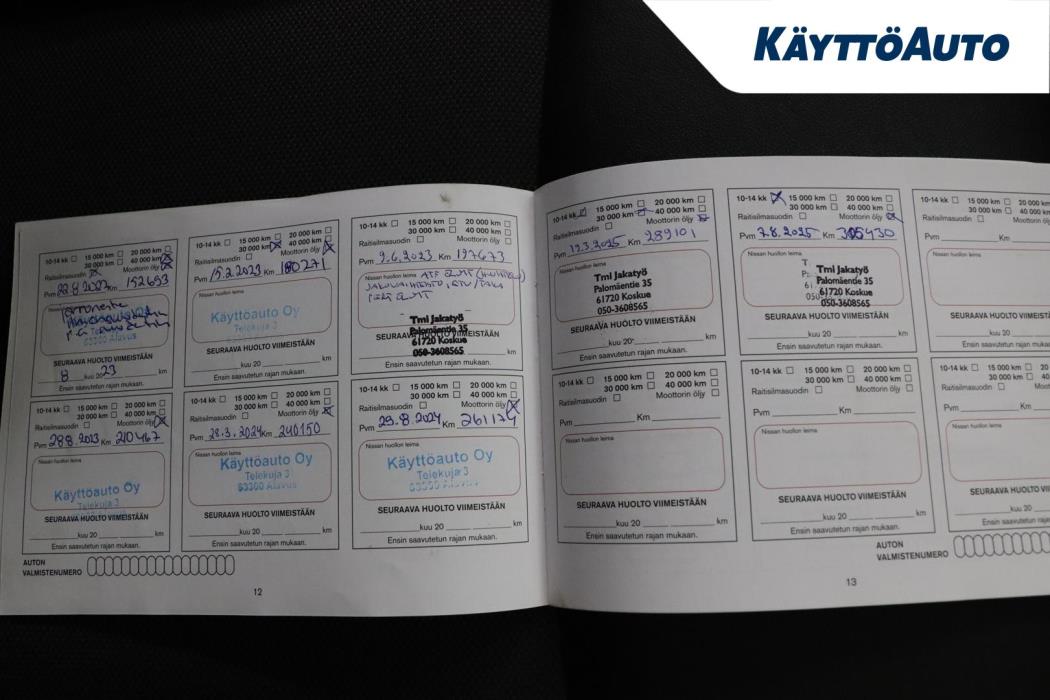 KÄYTTÖAUTO
10-14 kk 15 000 km 20 000 km
30 000 km 40 000 km
Raitisilmasuodin Moottorin öljy
Pvm Km 152653
Telekuja
63300 Alavus
SEURAAVA HUOLTO VIIMEISTÄÄN
8 kuu 20 23 km
Ensin saavutetun rajan mukaan.
10-14 kk 15 000 km 20 000 km
30 000 km 40 000 km
Raitisilmasuodin Moottorin öljy
Pvm 15.2.2023 Km 180271
Nissan huollon leima
Käyttöauto Oy
Telekuja 3
SEURAAVA HUOLTO VIIMEISTÄÄN
kuu 20 km
Ensin saavutetun rajan mukaan.
10-14 kk 15 000 km 20 000 km
30 000 km 40 000 km
Raitisilmasuodin Moottorin öljy
Pvm 9.6.2023 Km 197673
Nissan huollon leima
Tmi Jakatyö
Palomäentie 35
61720 Koskue
050-3608565
SEURAAVA HUOLTO VIIMEISTÄÄN
km
Ensin saavutetun rajan mukaan.
10-14 kk 15 000 km 20 000 km
30 000 km 40 000 km
Raitisilmasuodin Moottorin öljy
Pvm 28.8.2023 Km 210467
Nissan huollon leima
Käyttöauto Oy
Telekuja 3
SEURAAVA HUOLTO VIIMEISTÄÄN
kuu 20 km
Ensin saavutetun rajan mukaan.
10-14 kk 15 000 km 20 000 km
30 000 km 40 000 km
Raitisilmasuodin Moottorin öljy
Pvm 28.3.2024 Km 240150
Nissan huollon leima
Käyttöauto Oy
Telekuja 3
63300 Alavus
SEURAAVA HUOLTO VIIMEISTÄÄN
kuu 20 km
Ensin saavutetun rajan mukaan.
10-14 kk 15 000 km 20 000 km
30 000 km 40 000 km
Raitisilmasuodin Moottorin öljy
Pvm 29.8.2024 Km 261174
Nissan huollon leima
Käyttöauto Oy
Telekuja 3
63300 Alavus
SEURAAVA HUOLTO VIIMEISTÄÄN
kuu 20 km
Ensin saavutetun rajan mukaan.
AUTON
VALMISTENUMERO
12
10-14 kk 15 000 km 20 000 km
30 000 km 40 000 km
Raitisilmasuodin Moottorin öljy
Pvm 12.3.2025 Km 289101
Nissan huollon leima
Tmi Jakatyö
Palomäentie 35
61720 Koskue
050-3608565
SEURAAVA HUOLTO VIIMEISTÄÄN
kuu 20 km
Ensin saavutetun rajan mukaan.
10-14 kk 15 000 km 20 000 km
30 000 km 40 000 km
Raitisilmasuodin Moottorin öljy
Pvm 7.8.2025 Km 305430
Nissan huollon leima
Tmi Jakatyö
Palomäentie 35
61720 Koskue
050-3608565
SEURAAVA HUOLTO VIIMEISTÄÄN
kuu 20 km
Ensin saavutetun rajan mukaan.
10-14 kk 15 000 km 20
30 000 km 40
Raitisilmasuodin Moottorin
Pvm Km
Nissan huollon leima
SEURAAVA HUOLTO VIIMEISTÄÄN
kuu 20
Ensin saavutetun rajan mukaan.
10-14 kk 15 000 km 20 000 km
30 000 km 40 000 km
Raitisilmasuodin Moottorin öljy
Pvm Km
Nissan huollon leima
SEURAAVA HUOLTO VIIMEISTÄÄN
kuu 20 km
Ensin saavutetun rajan mukaan.
10-14 kk 15 000 km 20 000 km
30 000 km 40 000 km
Raitisilmasuodin Moottorin öljy
Pvm Km
Nissan huollon leima
SEURAAVA HUOLTO VIIMEISTÄÄN
kuu 20 km
Ensin saavutetun rajan mukaan.
10-14 kk 15 000 km 20
30 000 km 40
Raitisilmasuodin Moottorin
Pvm Km
Nissan huollon leima
SEURAAVA HUOLTO VIIMEISTÄÄN
kuu 20
Ensin saavutetun rajan mukaan.
AUTON
VALMISTENUMERO
13